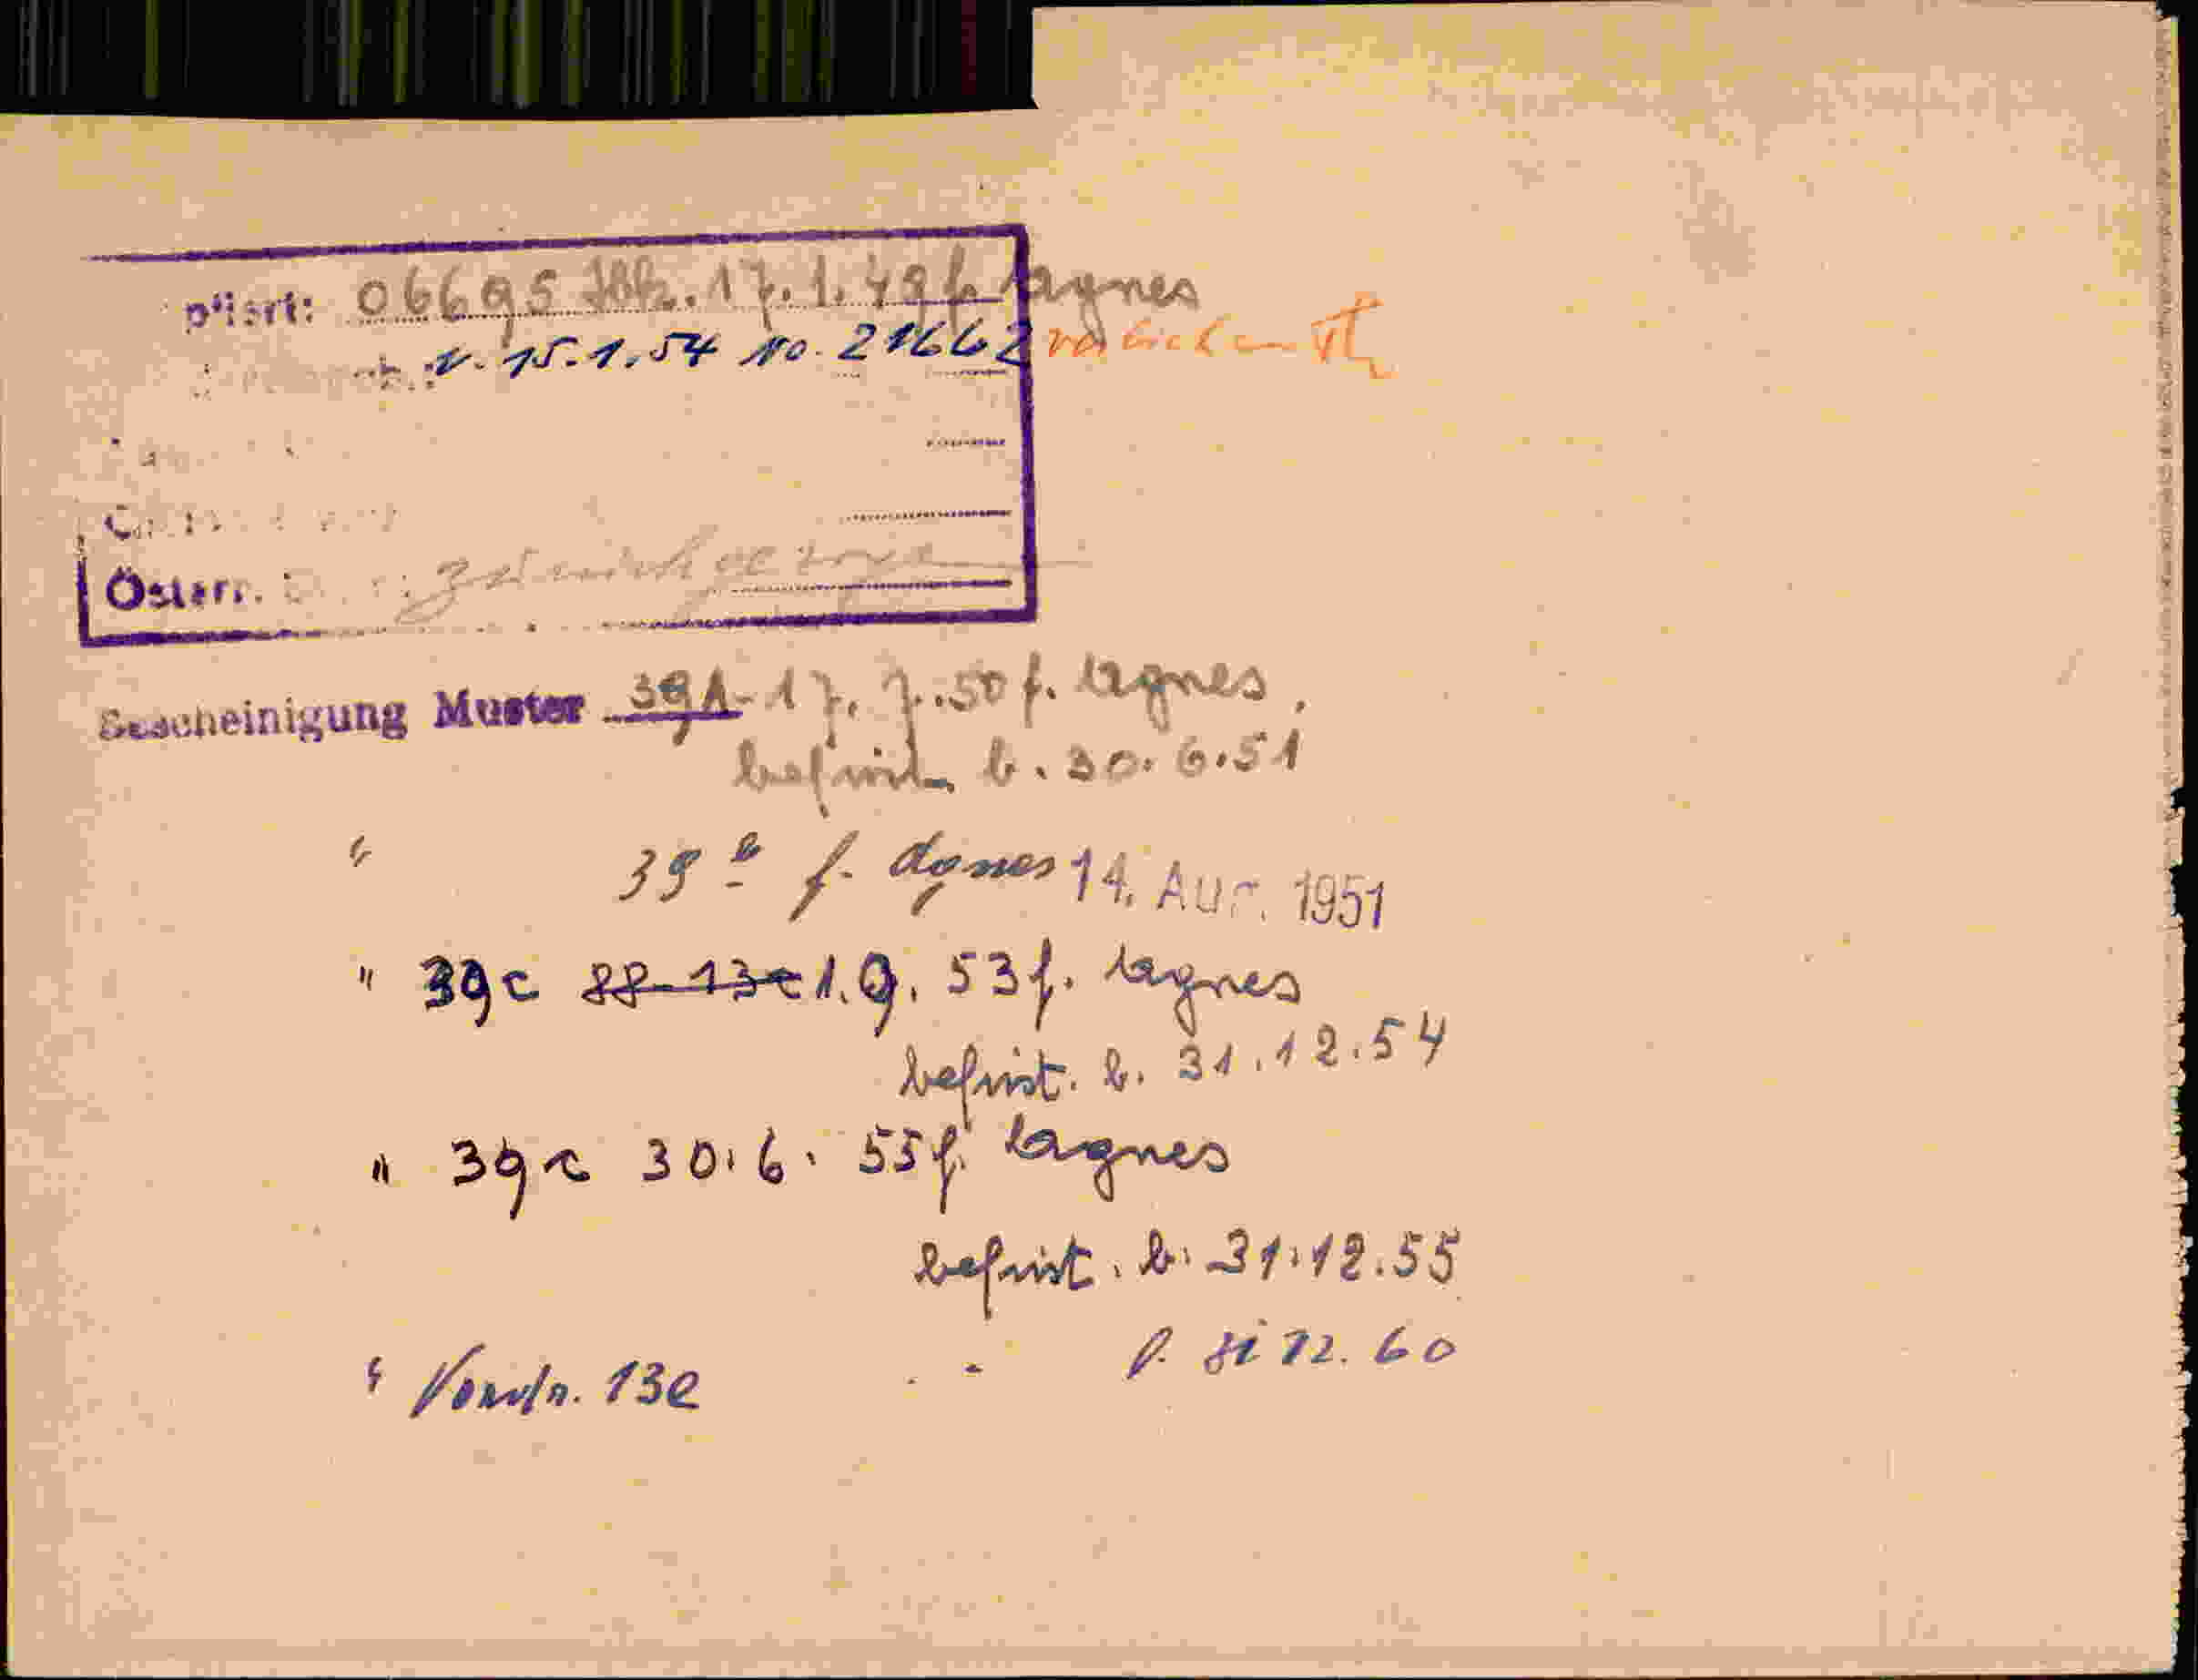 06695 17.1.49 f. Agnes
v. 15.1.54 No. 21662
Österr.
Bescheinigung Muster 39A - 17. 7. 50 f. Agnes,
befrist. b. 30.6.51
" 39b f. Agnes 14. Aug. 1951
" 39c 88-13e 1.9.53 f. Agnes
befrist. b. 31.12.54
" 39c 30.6.55 f. Agnes
befrist. b. 31.12.55
" Vordr. 13e " " f. 31 12. 60